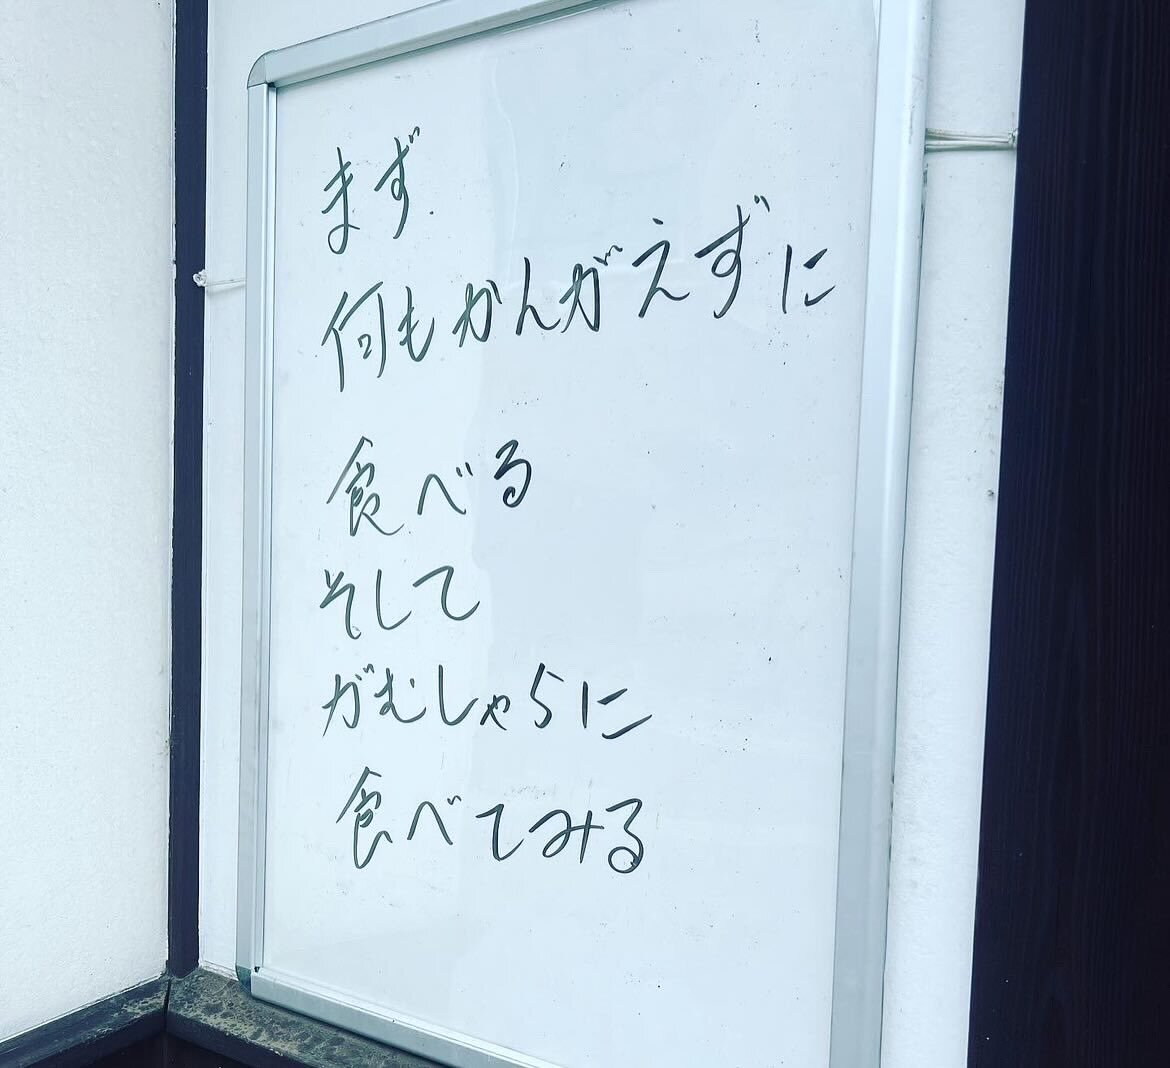 まず
何もかんがえずに
食べる
そして
がむしゃらに
食べてみる